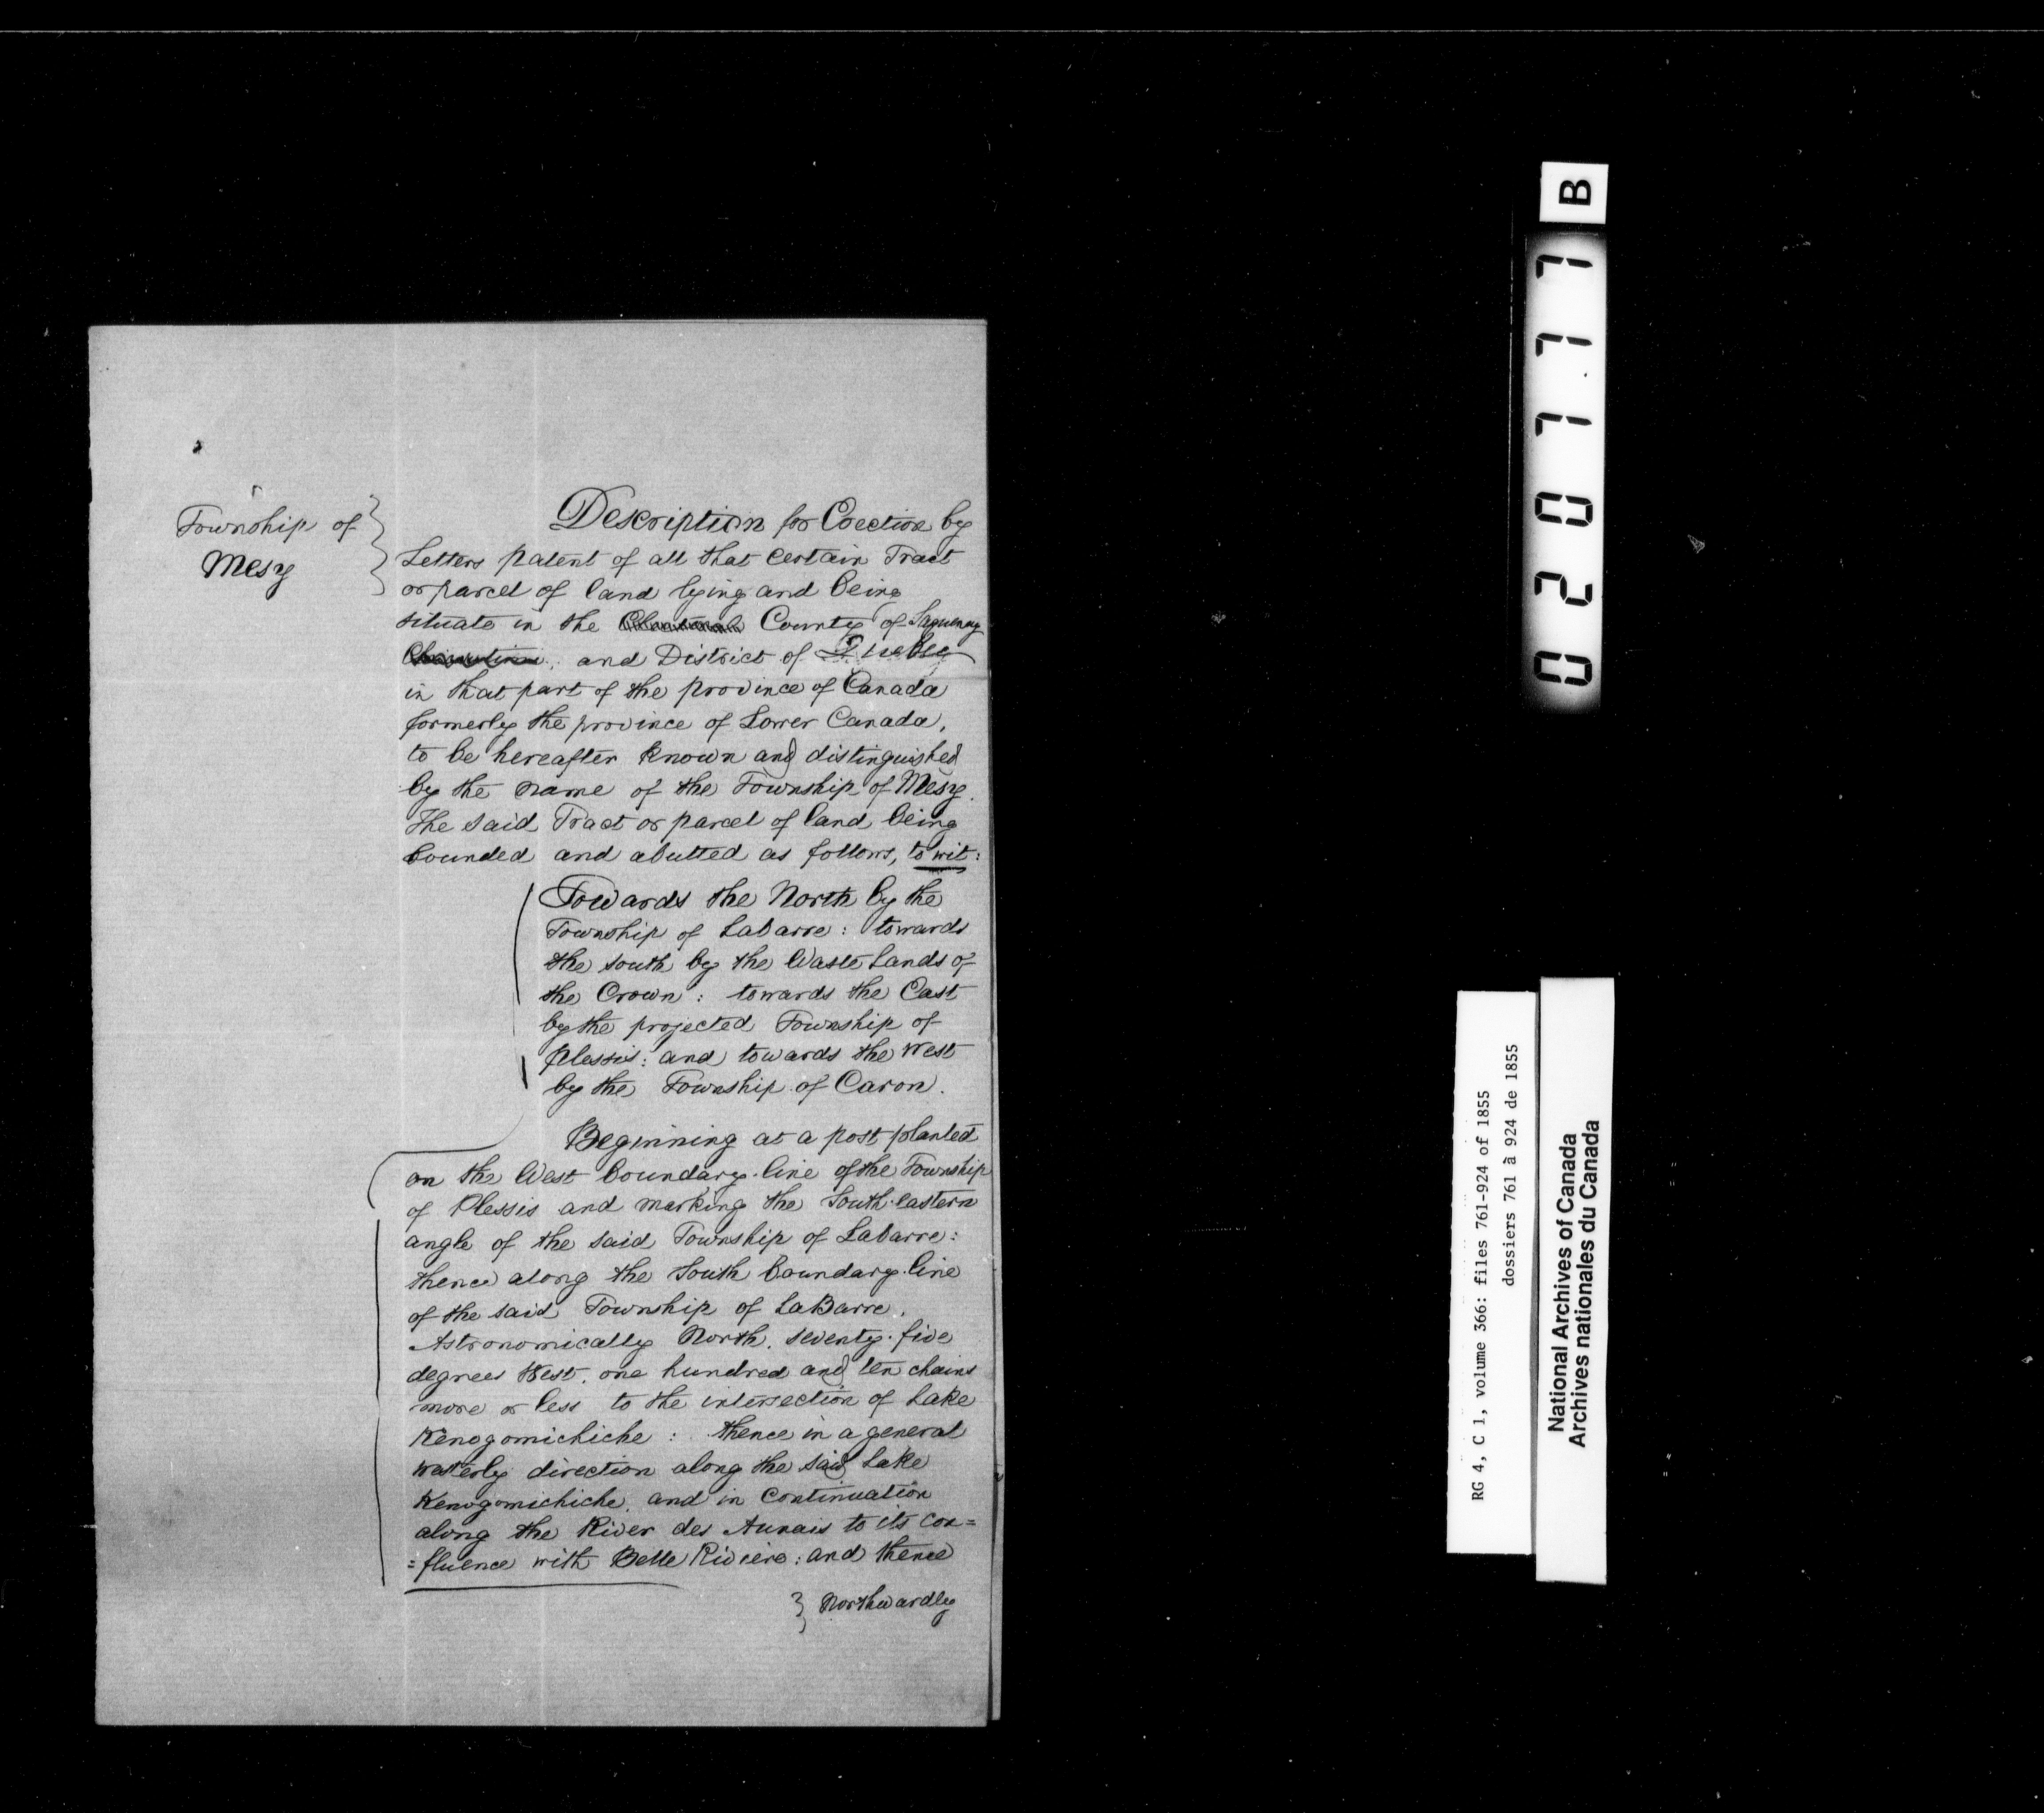 Township of
Mesy
Description for Erection by
Letters patent of all that certain Tract
or parcel of land lying and being
situate in the County of Saguenay
and District of Quebec
in that part of the province of Canada
formerly the province of Lower Canada,
to be hereafter known and distinguished
by the name of the Township of Mesy.
The said Tract or parcel of land being
bounded and abutted as follows, to wit:
Towards the North by the
Township of Labarre: towards
the south by the Waste Lands of
the Crown: towards the East
by the projected Township of
Plessis: and towards the West
by the Township of Caron.
Beginning at a post planted
on the West boundary line of the Township
of Plessis and marking the South-eastern
angle of the said Township of Labarre:
thence along the South boundary line
of the said Township of LaBarre,
Astronomically North, seventy-five
degrees West, one hundred and ten chains
more or less to the intersection of Lake
Kenogomichiche: thence in a general
westerly direction along the said Lake
Kenogomichiche, and in continuation
along the River des Aunais to its con=
=fluence with Belle Riviere: and thence
Northwardly
B
020777
RG 4, C 1, volume 366: files 761-924 of 1855
dossiers 761 à 924 de 1855
National Archives of Canada
Archives nationales du Canada